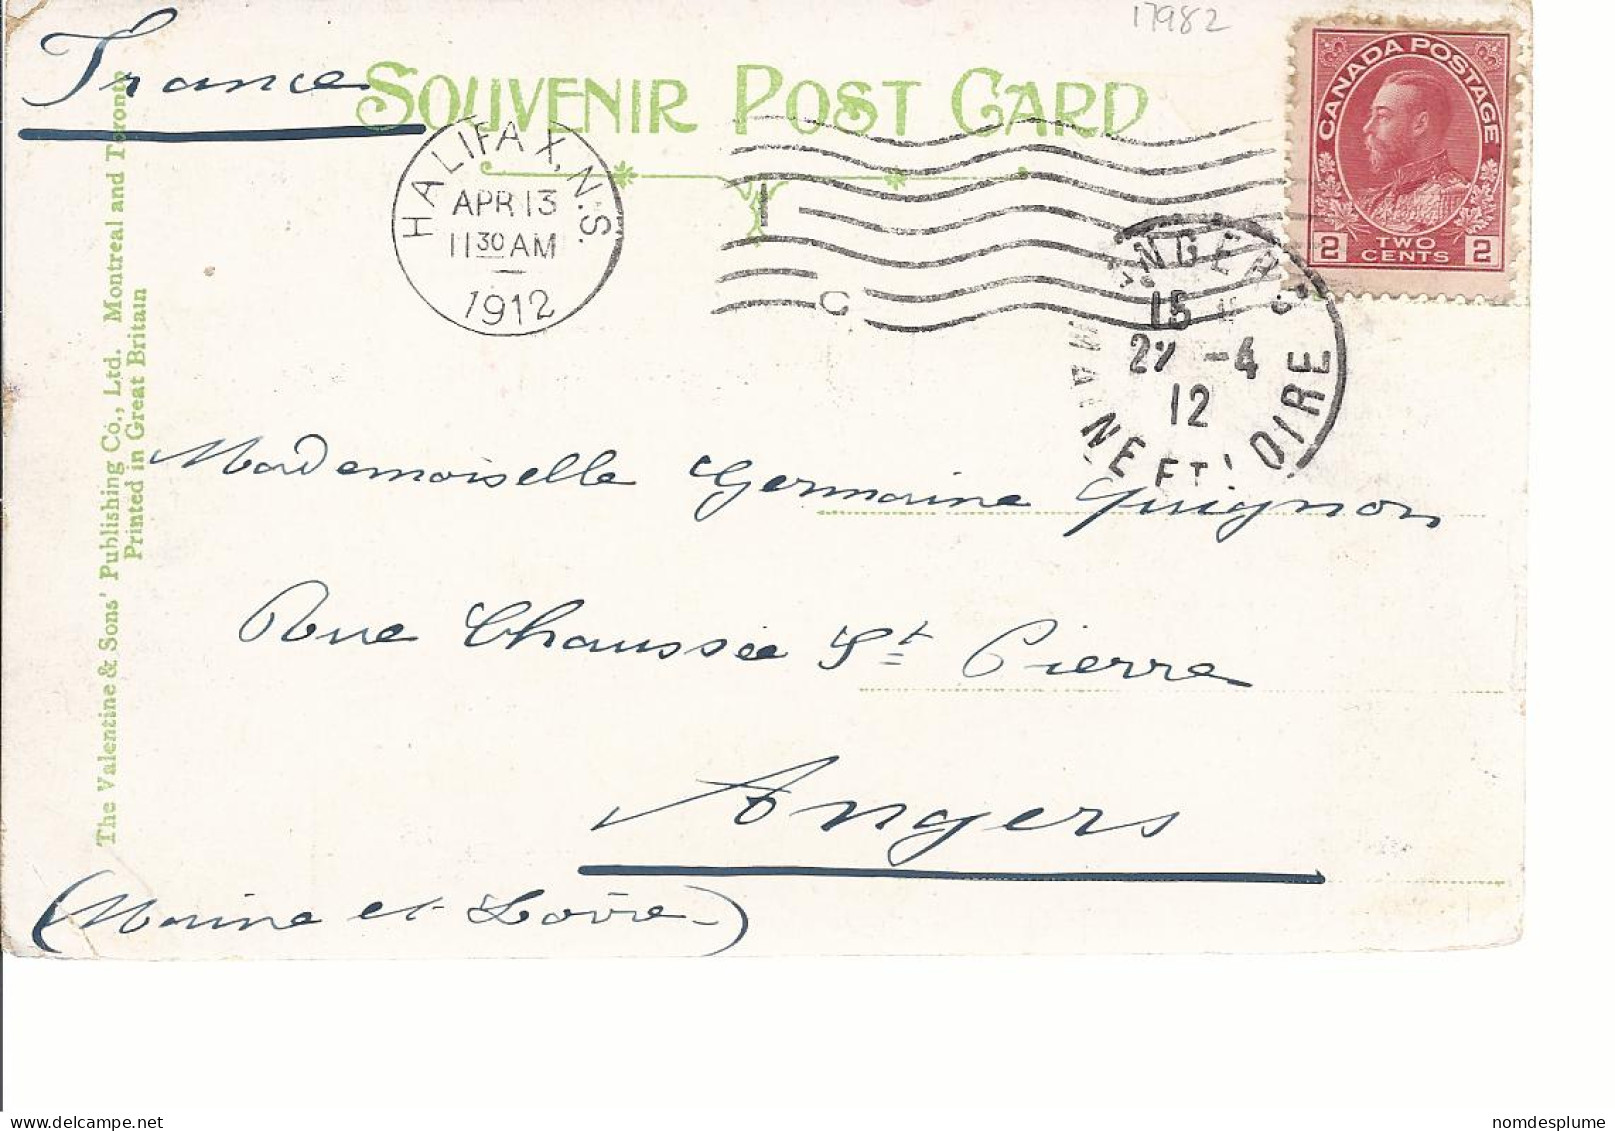 17982
France
SOUVENIR POST CARD
CANADA POSTAGE
2 TWO CENTS 2
HALIFAX, N.S.
APR 13
11 30 AM
1912
I
C
ANGERS
15
27 -4
12
MAINE ET LOIRE
Mademoiselle Germaine Guignon
Rue Chaussée St Pierre
Angers
(Maine et Loire)
The Valentine & Sons' Publishing Co., Ltd. Montreal and Toronto
Printed in Great Britain
nomdesplume